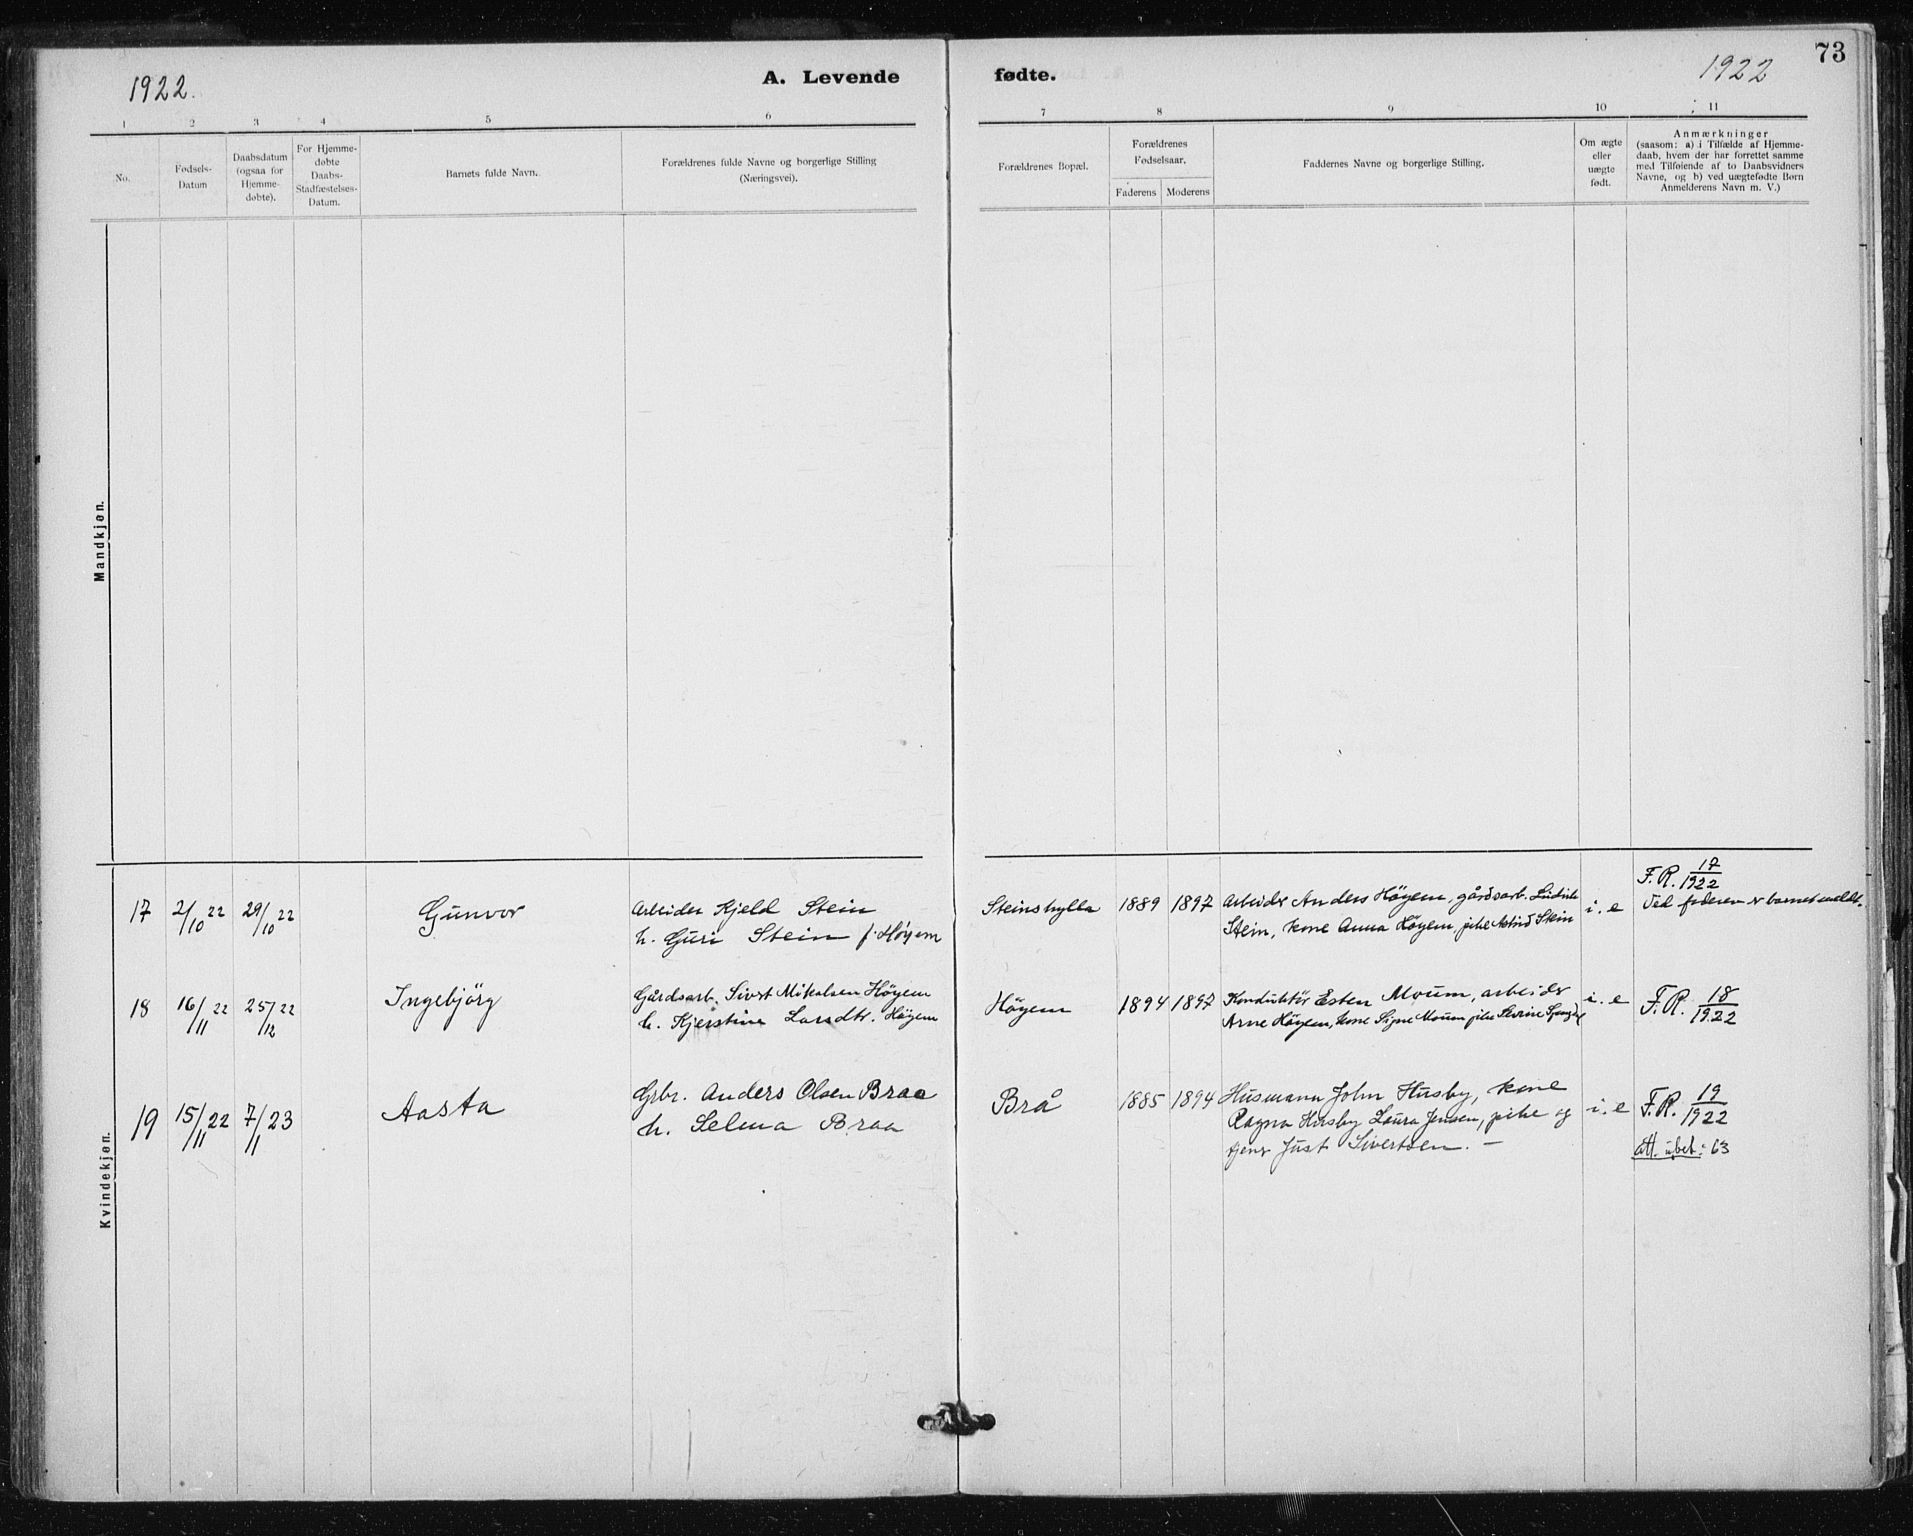 1922.
A. Levende fødte.
1922
73
1 2 3 4 5 6 7 8 9 10 11
No.
Fødsels-
Datum
Daabsdatum
(ogsaa for
Hjemme-
døbte).
For Hjemme-
døbte
Daabs-
Stadfæstelses-
Datum.
Barnets fulde Navn.
Forældrenes fulde Navne og borgerlige Stilling
(Næringsvei).
Forældrenes Bopæl.
Forældrenes
Fødselsaar.
Faderens Moderens
Faddernes Navne og borgerlige Stilling.
Om ægte
eller
uægte
født.
Anmærkninger
(saasom: a) i Tilfælde af Hjemme-
daab, hvem der har forrettet samme
med Tilføiende af to Daabsvidners
Navne, og b) ved uægtefødte Børn
Anmelderens Navn m. V.)
Mandkjøn.
Kvindekjøn.
17 2/10 22 29/10 22 Gunvor
Arbeider Kjeld Stein
h. Guri Stein f. Höyem
Steinshylla 1889 1897
Arbeider Anders Höyem, gårdsarb.
Stein, kone Anna Höyem, pike Astrid Stein
i. e
F.R. 17/1922
Ved faderen er barnet meldt.
18 16/11 22 25/12 22 Ingebjörg
Gårdsarb. Sivert Mikalsen Höyem
h. Kjerstine Larsdtr. Höyem
Höyem 1894 1897
Konduktör Esten Moum, arbeider
Arne Höyem, kone Signe Moum pike
i. e
F.R. 18/1922
19 15/11 22 7/1 23 Aasta
Grbr. Anders Olsen Braa
h. Selma Braa
Brå 1885 1894
Husmann John Husby, kone
Ragna Husby Laura Jensen, pike og
tjener Just Sivertsen. –
i. e
F.R. 19/1922
att. ubet: 63